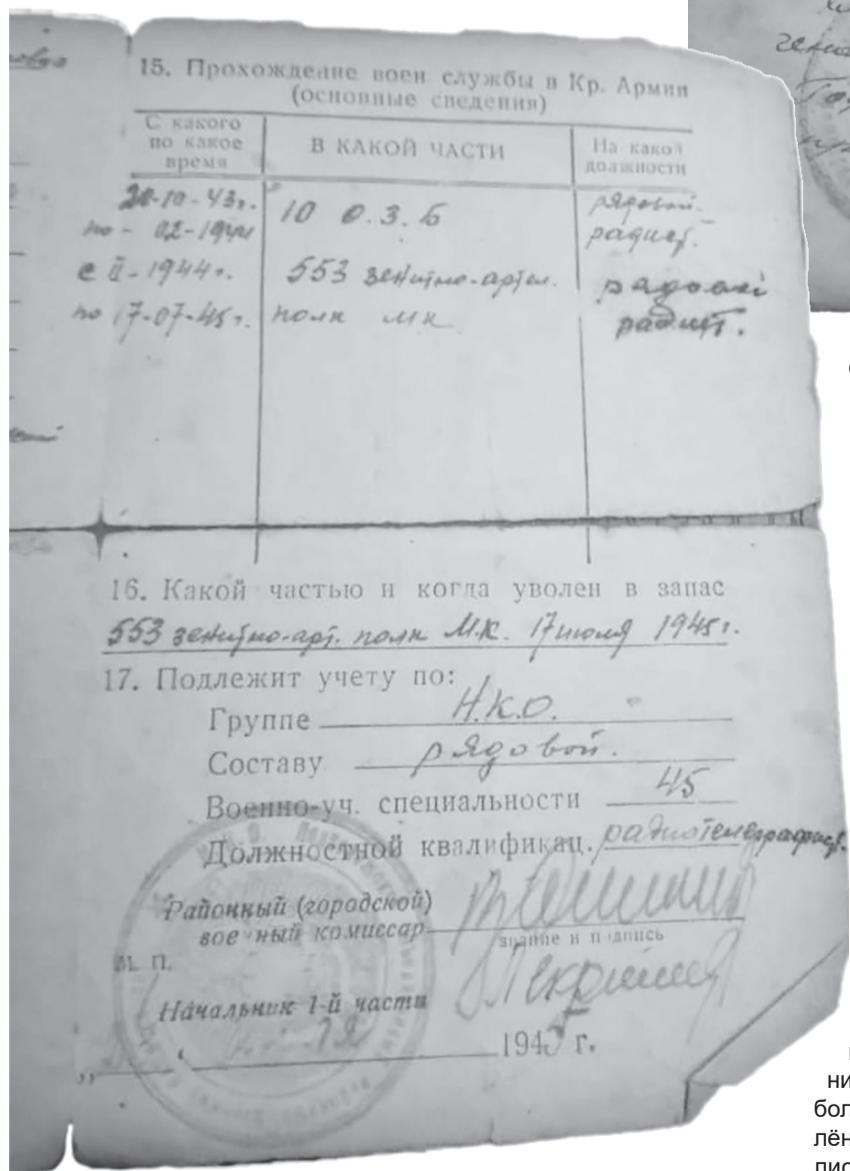 15. Прохождение воен службы в Кр. Армии
(основные сведения)
С какого по какое время
В КАКОЙ ЧАСТИ
На какой должности
20-10-43г. 10 О.З.Б рядовой-
по - 02-1944 радист.
с II-1944г. 553 зенитно-артил. рядовой
по 17-07-45г. полк МК радист.
16. Какой частью и когда уволен в запас
553 зенитно-арт. полк М.К. 17 июля 1945г.
17. Подлежит учету по:
Группе Н.К.О.
Составу рядовой.
Военно-уч. специальности 45
Должностной квалификац. радиотелеграфист.
Районный (городской)
военный комиссар
звание и подпись
М. П.
Начальник 1-й части
1945 г.
ни
бол
лён
лис